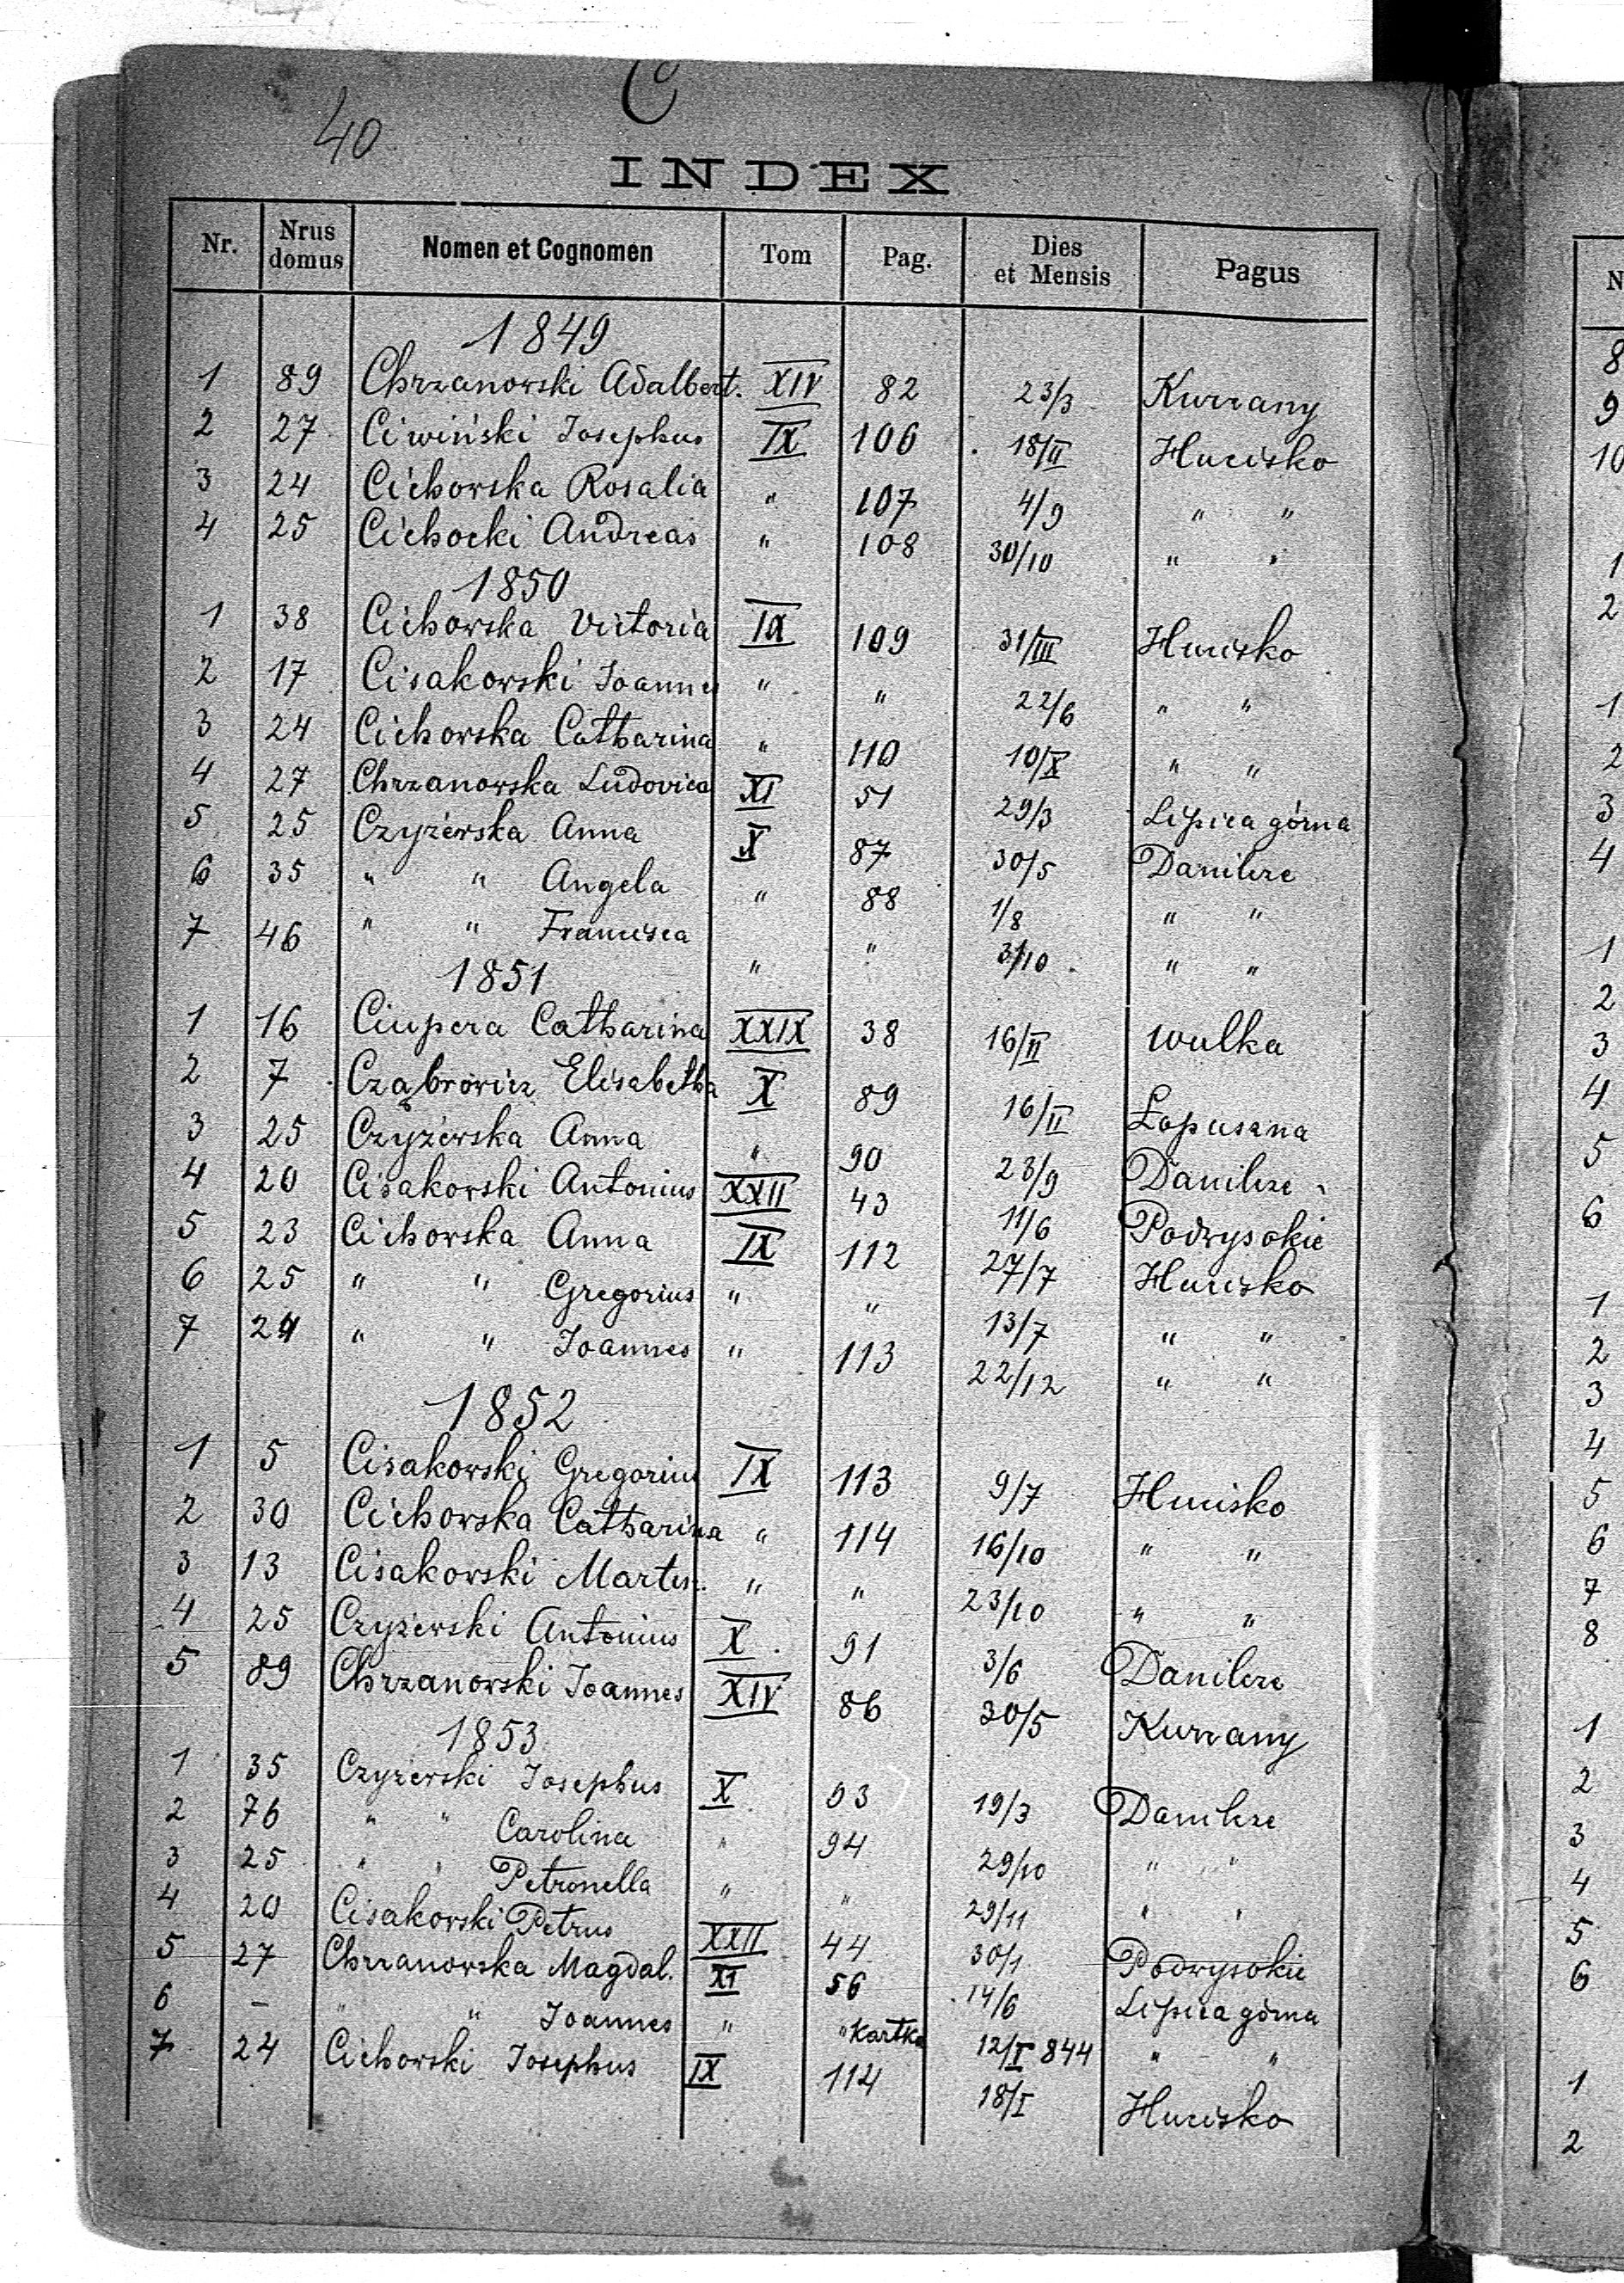 C
40
INDEX
Nr. Nrus domus Nomen et Cognomen Tom Pag. Dies et Mensis Pagus
1849
1 89 Chrzanowski Adalbert. XIV 82 23/3 Kurzany
2 27 Ciwiński Josephus IX 106 18/II Hucisko
3 24 Cichowska Rosalia " 107 4/9 " "
4 25 Cichocki Andreas " 108 30/10 " "
1850
1 38 Cichowska Victoria IX 109 31/III Hucisko
2 17 Cisakowski Joannes " " 22/6 " "
3 24 Cichowska Catharina " 110 10/X " "
4 27 Chrzanowska Ludovica XI 51 29/3 Lipica górna
5 25 Czyżewska Anna X 87 30/5 Danilcze
6 35 " " Angela " 88 1/8 " "
7 46 " " Francisca " " 31/10 " "
1851
1 16 Ciupera Catharina XXIX 38 16/II Wulka
2 7 Cząbrowicz Elisabetha X 89 16/II Łopuszna
3 25 Czyżewska Anna " 90 23/9 Danilcze
4 20 Cisakowski Antonius XXII 43 11/6 Podwysokie
5 23 Cichowska Anna IX 112 27/7 Hucisko
6 25 " " Gregorius " " 13/7 " "
7 24 " " Joannes " 113 22/12 " "
1852
1 5 Cisakowski Gregorius IX 113 9/7 Hucisko
2 30 Cichowska Catharina " 114 16/10 " "
3 13 Cisakowski Martin. " " 23/10 " "
4 25 Czyżewski Antonius X 91 3/6 Danilcze
5 89 Chrzanowski Joannes XIV 86 30/5 Kurzany
1853
1 35 Czyżewski Josephus X 93 19/3 Danilcze
2 76 " " Carolina " 94 29/10 " "
3 25 " " Petronella " " 29/11 " "
4 20 Cisakowski Petrus XXII 44 30/1 Podwysokie
5 27 Chrzanowska Magdal. XI 56 14/6 Lipica górna
6 - " " Joannes " " Kartka 12/I 844 " "
7 24 Cichowski Josephus IX 114 18/I Hucisko
N
8
9
10
1
2
1
2
3
4
1
2
3
4
5
6
1
2
3
4
5
6
7
8
1
2
3
4
5
6
1
2